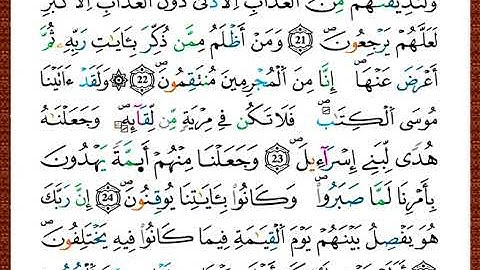 وَلَنُذِيقَنَّهُم مِّنَ ٱلْعَذَابِ ٱلْأَدْنَىٰ دُونَ ٱلْعَذَابِ ٱلْأَكْبَرِ
لَعَلَّهُمْ يَرْجِعُونَ 21 وَمَنْ أَظْلَمُ مِمَّن ذُكِّرَ بِـَٔايَٰتِ رَبِّهِۦ ثُمَّ
أَعْرَضَ عَنْهَا إِنَّا مِنَ ٱلْمُجْرِمِينَ مُنتَقِمُونَ 22 ۞ وَلَقَدْ ءَاتَيْنَا
مُوسَى ٱلْكِتَٰبَ فَلَا تَكُن فِى مِرْيَةٍ مِّن لِّقَآئِهِۦ وَجَعَلْنَٰهُ
هُدًى لِّبَنِى إِسْرَآءِيلَ 23 وَجَعَلْنَا مِنْهُمْ أَئِمَّةً يَهْدُونَ
بِأَمْرِنَا لَمَّا صَبَرُوا۟ وَكَانُوا۟ بِـَٔايَٰتِنَا يُوقِنُونَ 24 إِنَّ رَبَّكَ
هُوَ يَفْصِلُ بَيْنَهُمْ يَوْمَ ٱلْقِيَٰمَةِ فِيمَا كَانُوا۟ فِيهِ يَخْتَلِفُونَ